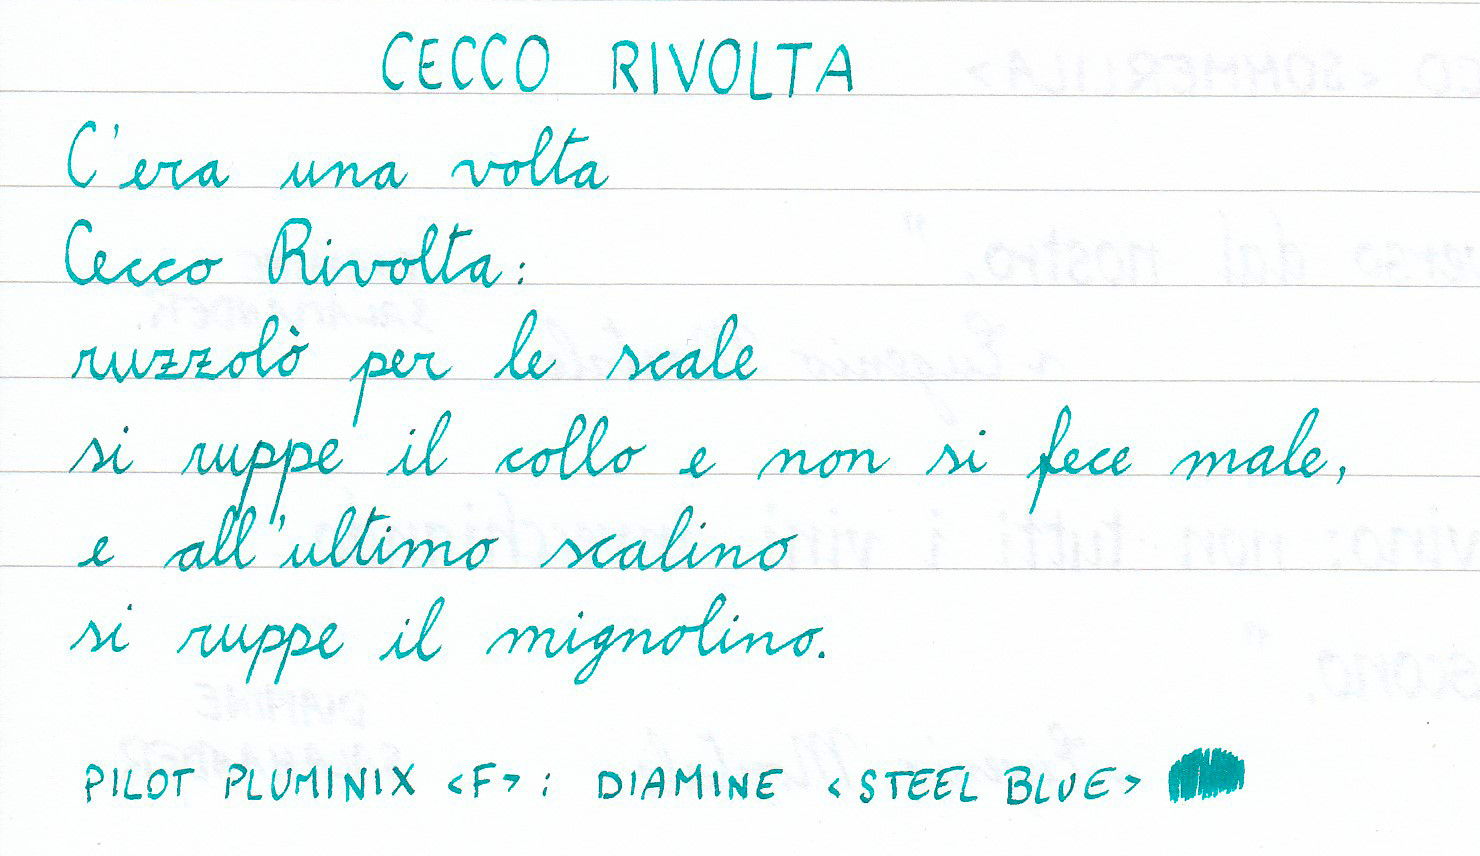 CECCO RIVOLTA
C'era una volta
Cecco Rivolta:
ruzzolò per le scale
si ruppe il collo e non si fece male,
e all'ultimo scalino
si ruppe il mignolino.
PILOT PLUMINIX <F>: DIAMINE <STEEL BLUE>